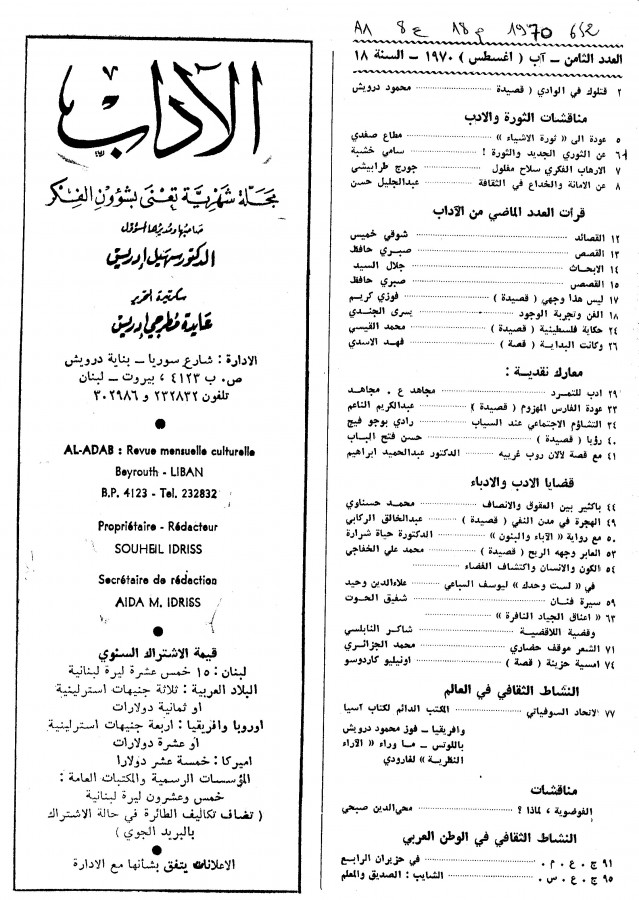 A٨ 8 ع 18 م 1970 642
العدد الثامن ــ آب ( اغسطس ) ١٩٧٠ ــ السنة ١٨
٢ قتلوك في الوادي ( قصيدة ) محمود درويش
مناقشات الثورة والادب
٥ عودة الى « ثورة الاشياء » مطاع صفدي
٦ عن الثوري الجديد والثورة ! سامي خشبة
٧ الارهاب الفكري سلاح مفلول جورج طرابيشي
٨ عن الامانة والخداع في الثقافة عبدالجليل حسن
قرأت العدد الماضي من الآداب
١٢ القصائد شوقي خميس
١٣ القصص صبري حافظ
١٤ الابحاث جلال السيد
١٥ القصص صبري حافظ
١٧ ليس هذا وجهي ( قصيدة ) فوزي كريم
١٨ الفن وتجربة الوجود يسرى الجندي
٢٤ حكاية فلسطينية ( قصيدة ) محمد القيسي
٢٦ وكانت البداية ( قصة ) فهد الاسدي
معارك نقدية :
٢٩ ادب للتمرد مجاهد ع . مجاهد
٣٣ عودة الفارس المهزوم ( قصيدة ) عبدالكريم الناعم
٣٤ التشاؤم الاجتماعي عند السياب رادي بوجو فيج
٤٠ رؤيا ( قصيدة ) حسن فتح الباب
٤١ مع قصة لالان روب غرييه الدكتور عبدالحميد ابراهيم
قضايا الادب والادباء
٤٤ باكثير بين العقوق والانصاف محمد حسناوي
٤٩ الهجرة في مدن النفي ( قصيدة ) عبدالخالق الركابي
٥٠ مع رواية « الآباء والبنون » الدكتورة حياة شرارة
٥٣ العابر وجهه الريح ( قصيدة ) محمد علي الخفاجي
٥٤ الكون والانسان واكتشاف الفضاء
في « لست وحدك » ليوسف السباعي علاءالدين وحيد
٥٩ سيرة فنان شفيق الحوت
٦٣ « اعناق الجياد النافرة »
وقضية اللاقضية شاكر النابلسي
٧١ الشعر موقف حضاري محمد الجزائري
٧٤ امسية حزينة ( قصة ) اونيليو كاردوسو
النشاط الثقافي في العالم
٧٧ الاتحاد السوفياتي المكتب الدائم لكتاب آسيا
وافريقيا ــ فوز محمود درويش
باللوتس ــ ما وراء « الآراء
النظرية » لغارودي
مناقشات
الفوضوية ، لماذا ؟ محي‌الدين صبحي
النشاط الثقافي في الوطن العربي
٩١ ج . ع . م . في حزيران الرابع
٩٥ ج . ع . س . الشايب : الصديق والمعلم
الآداب
مجلة شهرية تعنى بشؤون الفكر
صاحبها ومديرها المسؤول
الدكتور سهيل ادريس
سكرتيرة التحرير
عايدة مطرجي ادريس
الادارة : شارع سوريا ــ بناية درويش
ص . ب ٤١٢٣ ، بيروت ــ لبنان
تلفون ٢٣٢٨٣٢ و ٣٠٢٩٨٦
AL-ADAB : Revue mensuelle culturelle
Beyrouth - LIBAN
B.P. 4123 - Tel. 232832
Propriétaire - Rédacteur
SOUHEIL IDRISS
Secrétaire de rédaction
AIDA M. IDRISS
قيمة الاشتراك السنوي
لبنان : ١٥ خمس عشرة ليرة لبنانية
البلاد العربية : ثلاثة جنيهات استرلينية
او ثمانية دولارات
اوروبا وافريقيا : اربعة جنيهات استرلينية
او عشرة دولارات
اميركا : خمسة عشر دولارا
المؤسسات الرسمية والمكتبات العامة :
خمس وعشرون ليرة لبنانية
( تضاف تكاليف الطائرة في حالة الاشتراك
بالبريد الجوي )
الاعلانات يتفق بشأنها مع الادارة